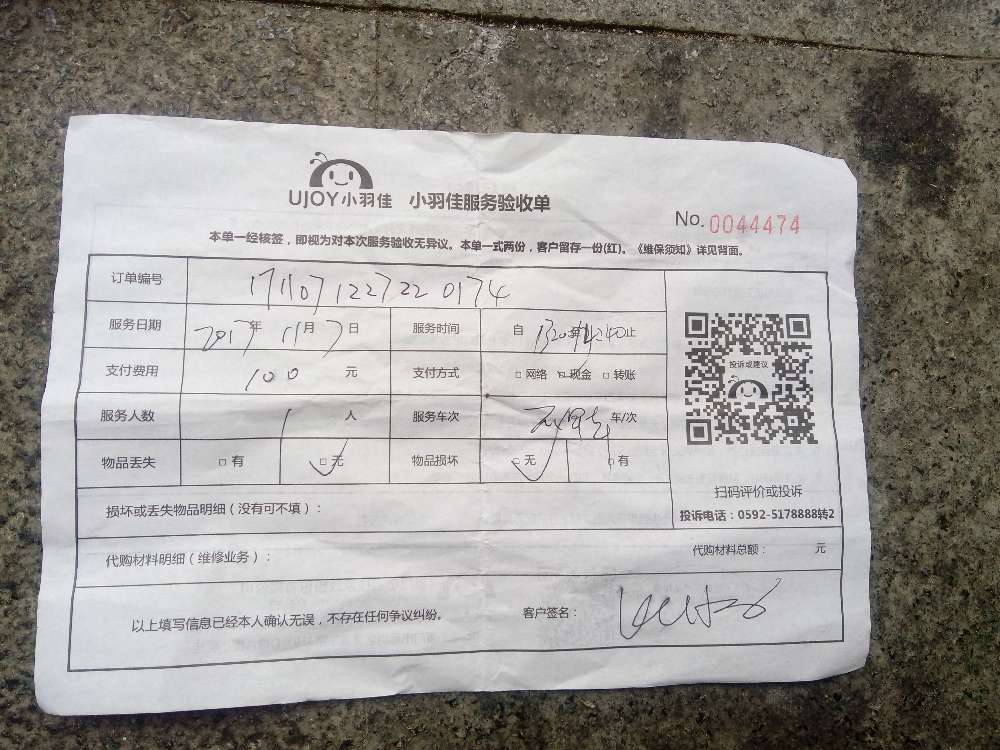 UJOY小羽佳 小羽佳服务验收单
No. 0044474
本单一经核签，即视为对本次服务验收无异议。本单一式两份，客户留存一份(红)。《维保须知》详见背面。
订单编号 171107122722 0174
服务日期 2017年 11月 7日 服务时间 自 止
支付费用 100 元 支付方式 □网络 □现金 □转账
服务人数 1 人 服务车次 车/次
物品丢失 □有 □无 物品损坏 □无 □有
投诉或建议
扫码评价或投诉
投诉电话：0592-5178888转2
损坏或丢失物品明细（没有可不填）：
代购材料明细（维修业务）： 代购材料总额： 元
以上填写信息已经本人确认无误，不存在任何争议纠纷。 客户签名：